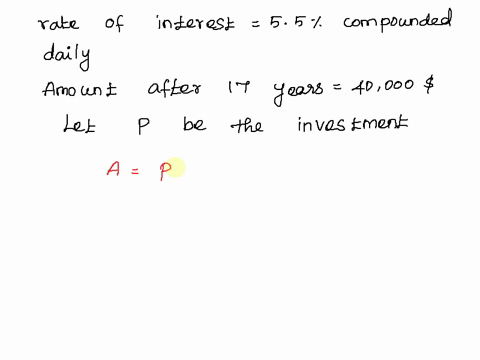 rate of interest = 5.5% compounded
daily
Amount after 17 years = 40,000 $
Let P be the investment
A = P